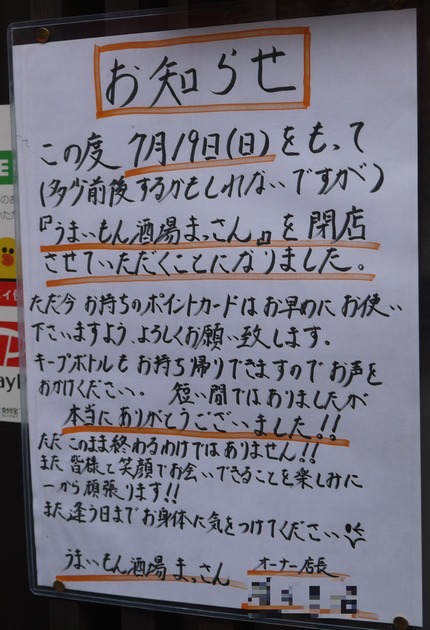 お知らせ
この度 7月19日(日)をもって
(多少前後するかもしれないですが)
『うまいもん酒場まっさん』を閉店
させていただくことになりました。
ただ今お持ちのポイントカードはお早めにお使い
下さいますよう、よろしくお願い致します。
キープボトルもお持ち帰りできますのでお声を
おかけください。 短い間ではありましたが
本当にありがとうございました!!
ただこのまま終わるわけではありません!!
また皆様と笑顔でお会いできることを楽しみに
一から頑張ります!!
また逢う日までお身体に気をつけてください
うまいもん酒場まっさん
オーナー店長